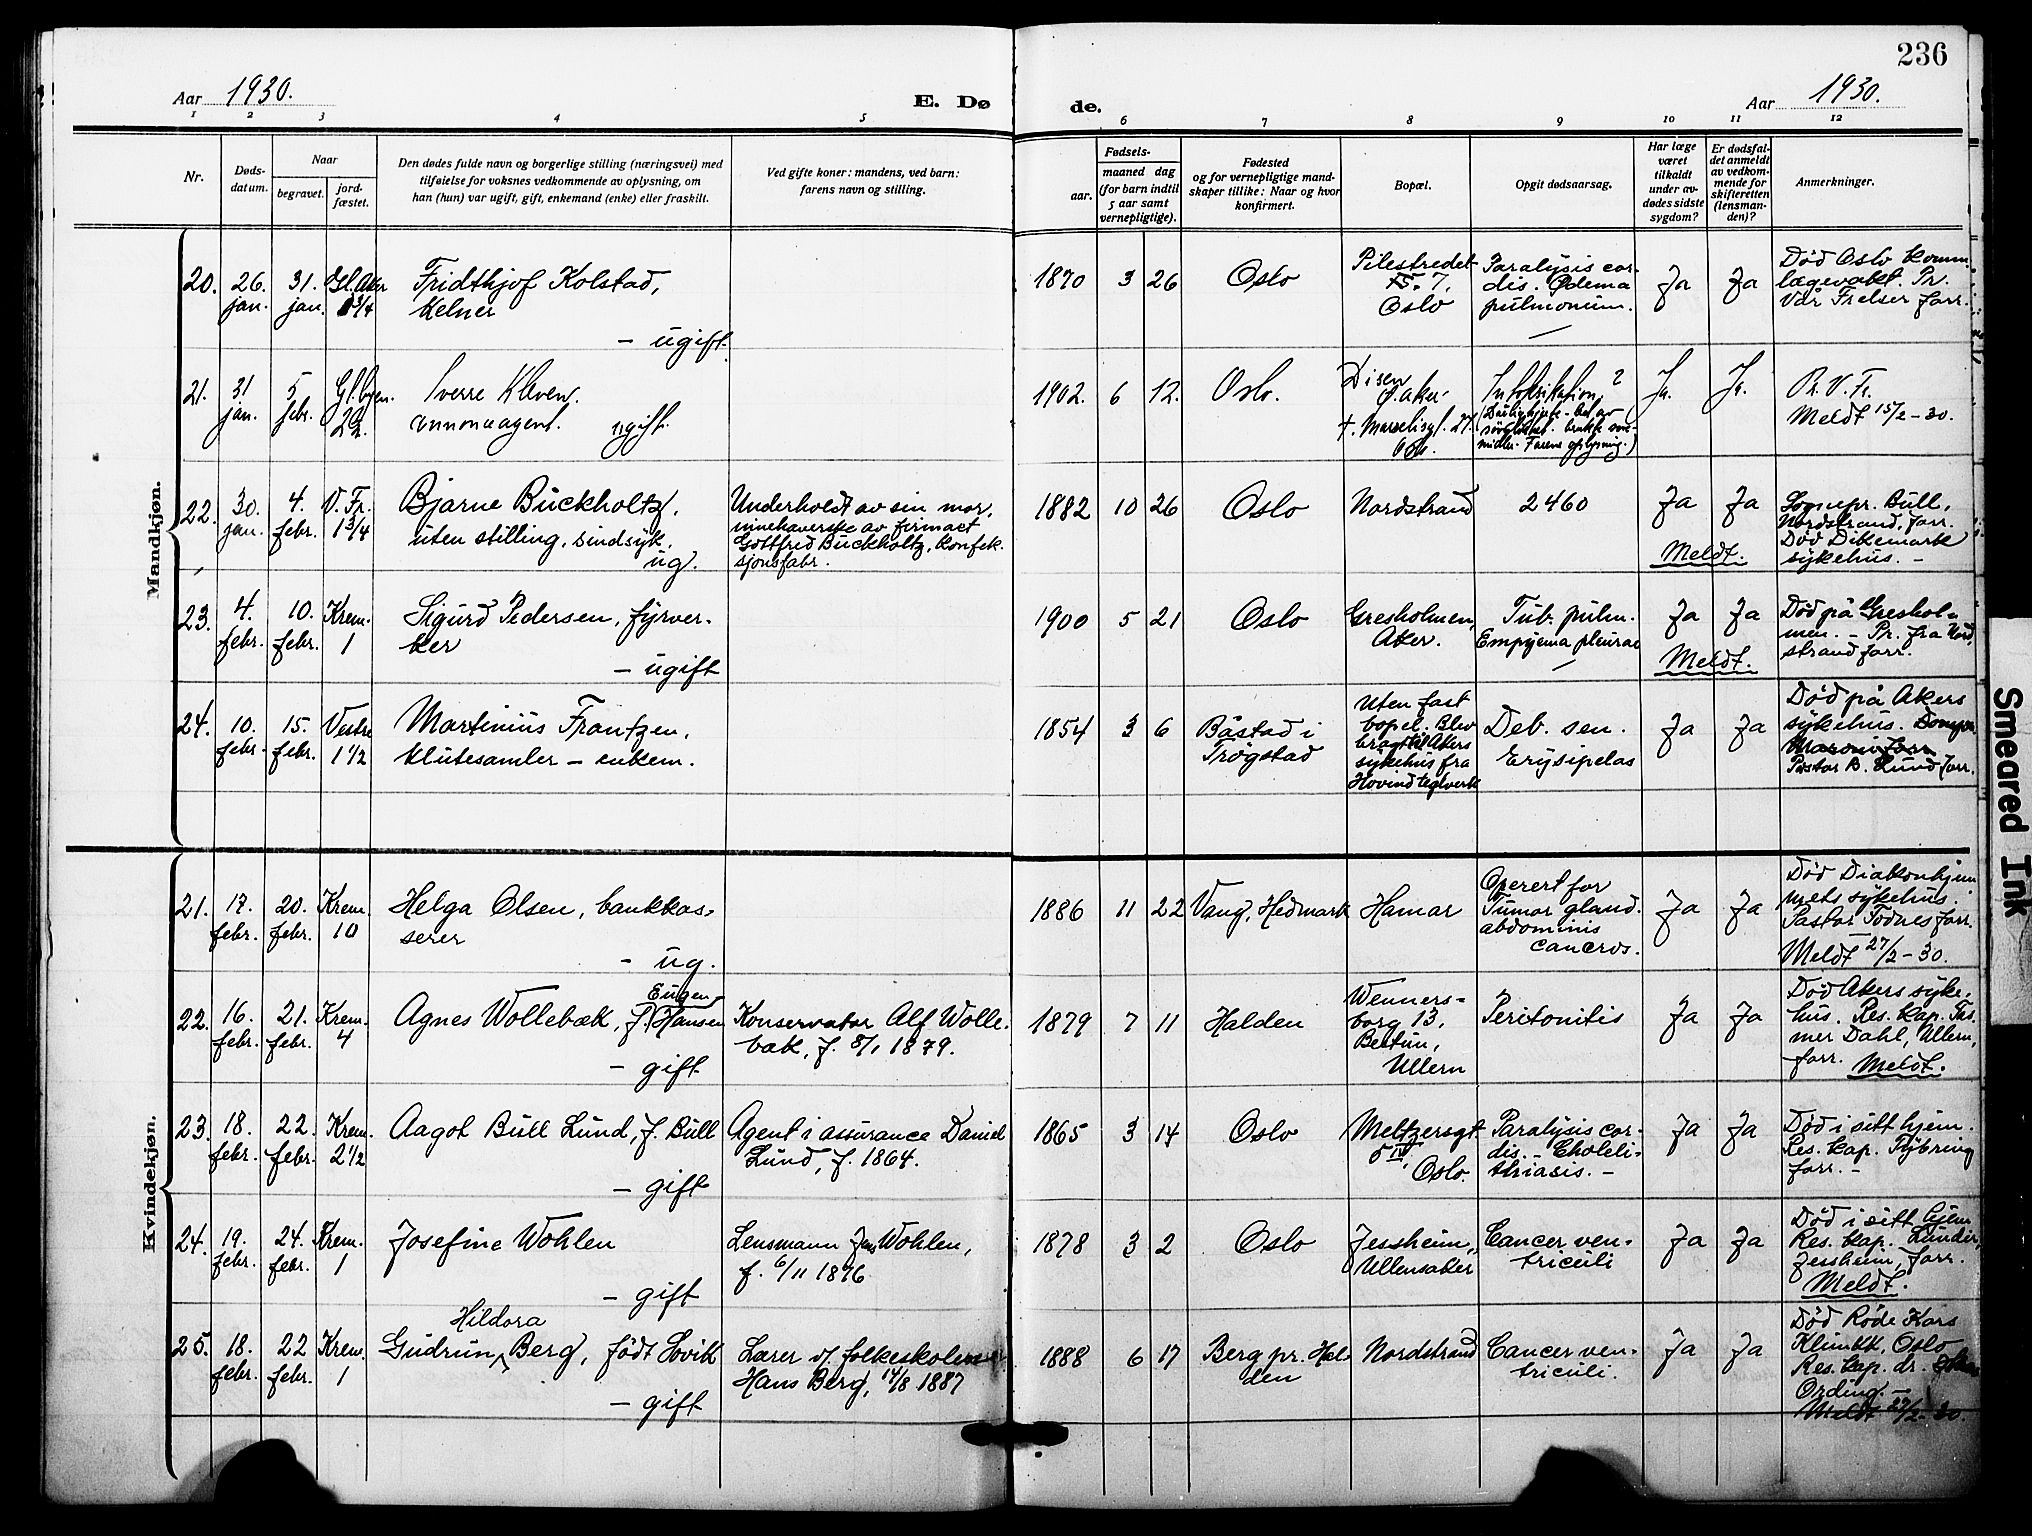 236
Aar 1930.
E. Dø de.
Aar 1930.
1 2 3 4 5 6 7 8 9 10 11 12
Nr.
Døds-
datum.
Naar
begravet.
jord-
fæstet.
Den dødes fulde navn og borgerlige stilling (næringsvei) med
tilføielse for voksnes vedkommende av oplysning, om
han (hun) var ugift, gift, enkemand (enke) eller fraskilt.
Ved gifte koner: mandens, ved barn:
farens navn og stilling.
Fødsels-
aar.
maaned dag
(for barn indtil
5 aar samt
vernepligtige).
Fødested
og for vernepligtige mand-
skaper tillike: Naar og hvor
konfirmert.
Bopæl.
Opgit dødsaarsag.
Har læge
været
tilkaldt
under av-
dødes sidste
sygdom?
Er dødsfal-
det anmeldt
av vedkom-
mende for
skifteretten
(lensman-
den)?
Anmerkninger.
Mandkjøn.
20.
26.
jan.
31.
jan.
Gl. Aker
1 3/4
Fridthjof Kolstad,
Kelner
- ugift.
1870 3 26
Oslo
Pilestredet
7,
Oslo
Paralysis cor-
dis. Ødema
pulmonum.
Ja Ja
Død Oslo komm
lægevakt. Pr.
Vår Frelser forr.
21.
31
jan.
5
febr.
22.
Sverre Kleven.
annonceagent. ugift.
1902. 6 12.
Oslo.
Disen
Ø. aker.
27.
Intoksikation?
Ja. Ja.
Pr. V. Fr.
Meldt 15/2-30.
22.
30.
jan.
4.
febr.
V. Fr.
1 3/4
Bjarne Buckholtz,
uten stilling, sindsyk.
ug.
Underholdt av sin mor,
innehaverske av firmaet
Gottfred Buckholtz, konfek-
sjonsfabr.
1882 10 26
Oslo
Nordstrand
2460
Ja Ja
Meldt.
Sognepr. Bull,
Nordstrand, forr.
Død Dikemark
sykehus. -
23.
4.
febr.
10.
febr.
Krem.
1
Sigurd Pedersen, fyrver-
ker
- ugift
1900 5 21
Oslo
Gresholmen,
Aker.
Tub. pulm.
Empyema pleurae
Ja Ja
Meldt.
Død på Greshol-
men. - Pr. fra Nord
strand forr.
24.
10.
febr.
15.
febr.
Vestre
1 1/2
Martinius Frantzen,
klutesamler - enkem.
1854 3 6
Båstad i
Trøgstad
Uten fast
bopel. Blev
bragt til Akers
sykehus fra
Hovind teglverk
Deb. sen.
Erysipelas
Ja Ja
Død på Akers
sykehus.
Pastor B. Lund forr.
Kvindekjøn.
21.
17.
febr.
20.
febr.
Krem.
10
Helga Olsen, bankkas-
serer
- ug.
1886 11 22
Vang, Hedmark
Hamar
Operert for
Tumor gland.
abdominis
cancros.
Ja Ja
Død Diakonhjem
mets sykehus.
Pastor Todnes forr.
Meldt 27/2-30.
22.
16.
febr.
21.
febr.
Krem.
4
Eugen
Agnes Wollebæk, f. Hansen
- gift
Konservator Alf Wolle-
bæk, f. 8/1 1879.
1879 7 11
Halden
Wenners-
borg 13,
Bestun,
Ullern
Peritonitis
Ja Ja
Død Akers syke-
hus. Res. kap. Tas-
mer Dahl, Ullern,
forr. Meldt.
23.
18.
febr.
22.
febr.
Krem.
2 1/2
Aagot Bull Lund, f. Bull
- gift
Agent i assurance Daniel
Lund, f. 1864.
1865 3 14
Oslo
Meltzersgt
5 IV,
Oslo.
Paralysis cor-
dis. - Choleli-
thiasis. -
Ja Ja
Død i sitt hjem.
Res. kap. Tybring
forr. -
24.
19.
febr.
24.
febr.
Krem.
1
Josefine Wohlen
- gift
Lensmann Jens Wohlen,
f. 6/11 1876
1878 3 2
Oslo
Jessheim,
Ullensaker
Cancer ven-
triculi
Ja Ja
Død i sitt hjem
Res. kap. Lunde,
Jessheim, forr.
Meldt.
25.
18.
febr.
22
febr.
Krem.
1
Hildora
Gudrun Berg, født Løvik
- gift
Lærer v. folkeskolen
Hans Berg, 14/8 1887
1888 6 17
Berg pr. Hal-
den
Nordstrand
Cancer ven-
triculi.
Ja Ja
Død Røde Kors
Klinikk, Oslo
Res. kap. dr.
Ording. -
Meldt 27/2-30.
Smeared Ink